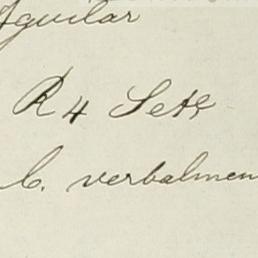 Aguilar
R 4 Setе
C. verbalmen